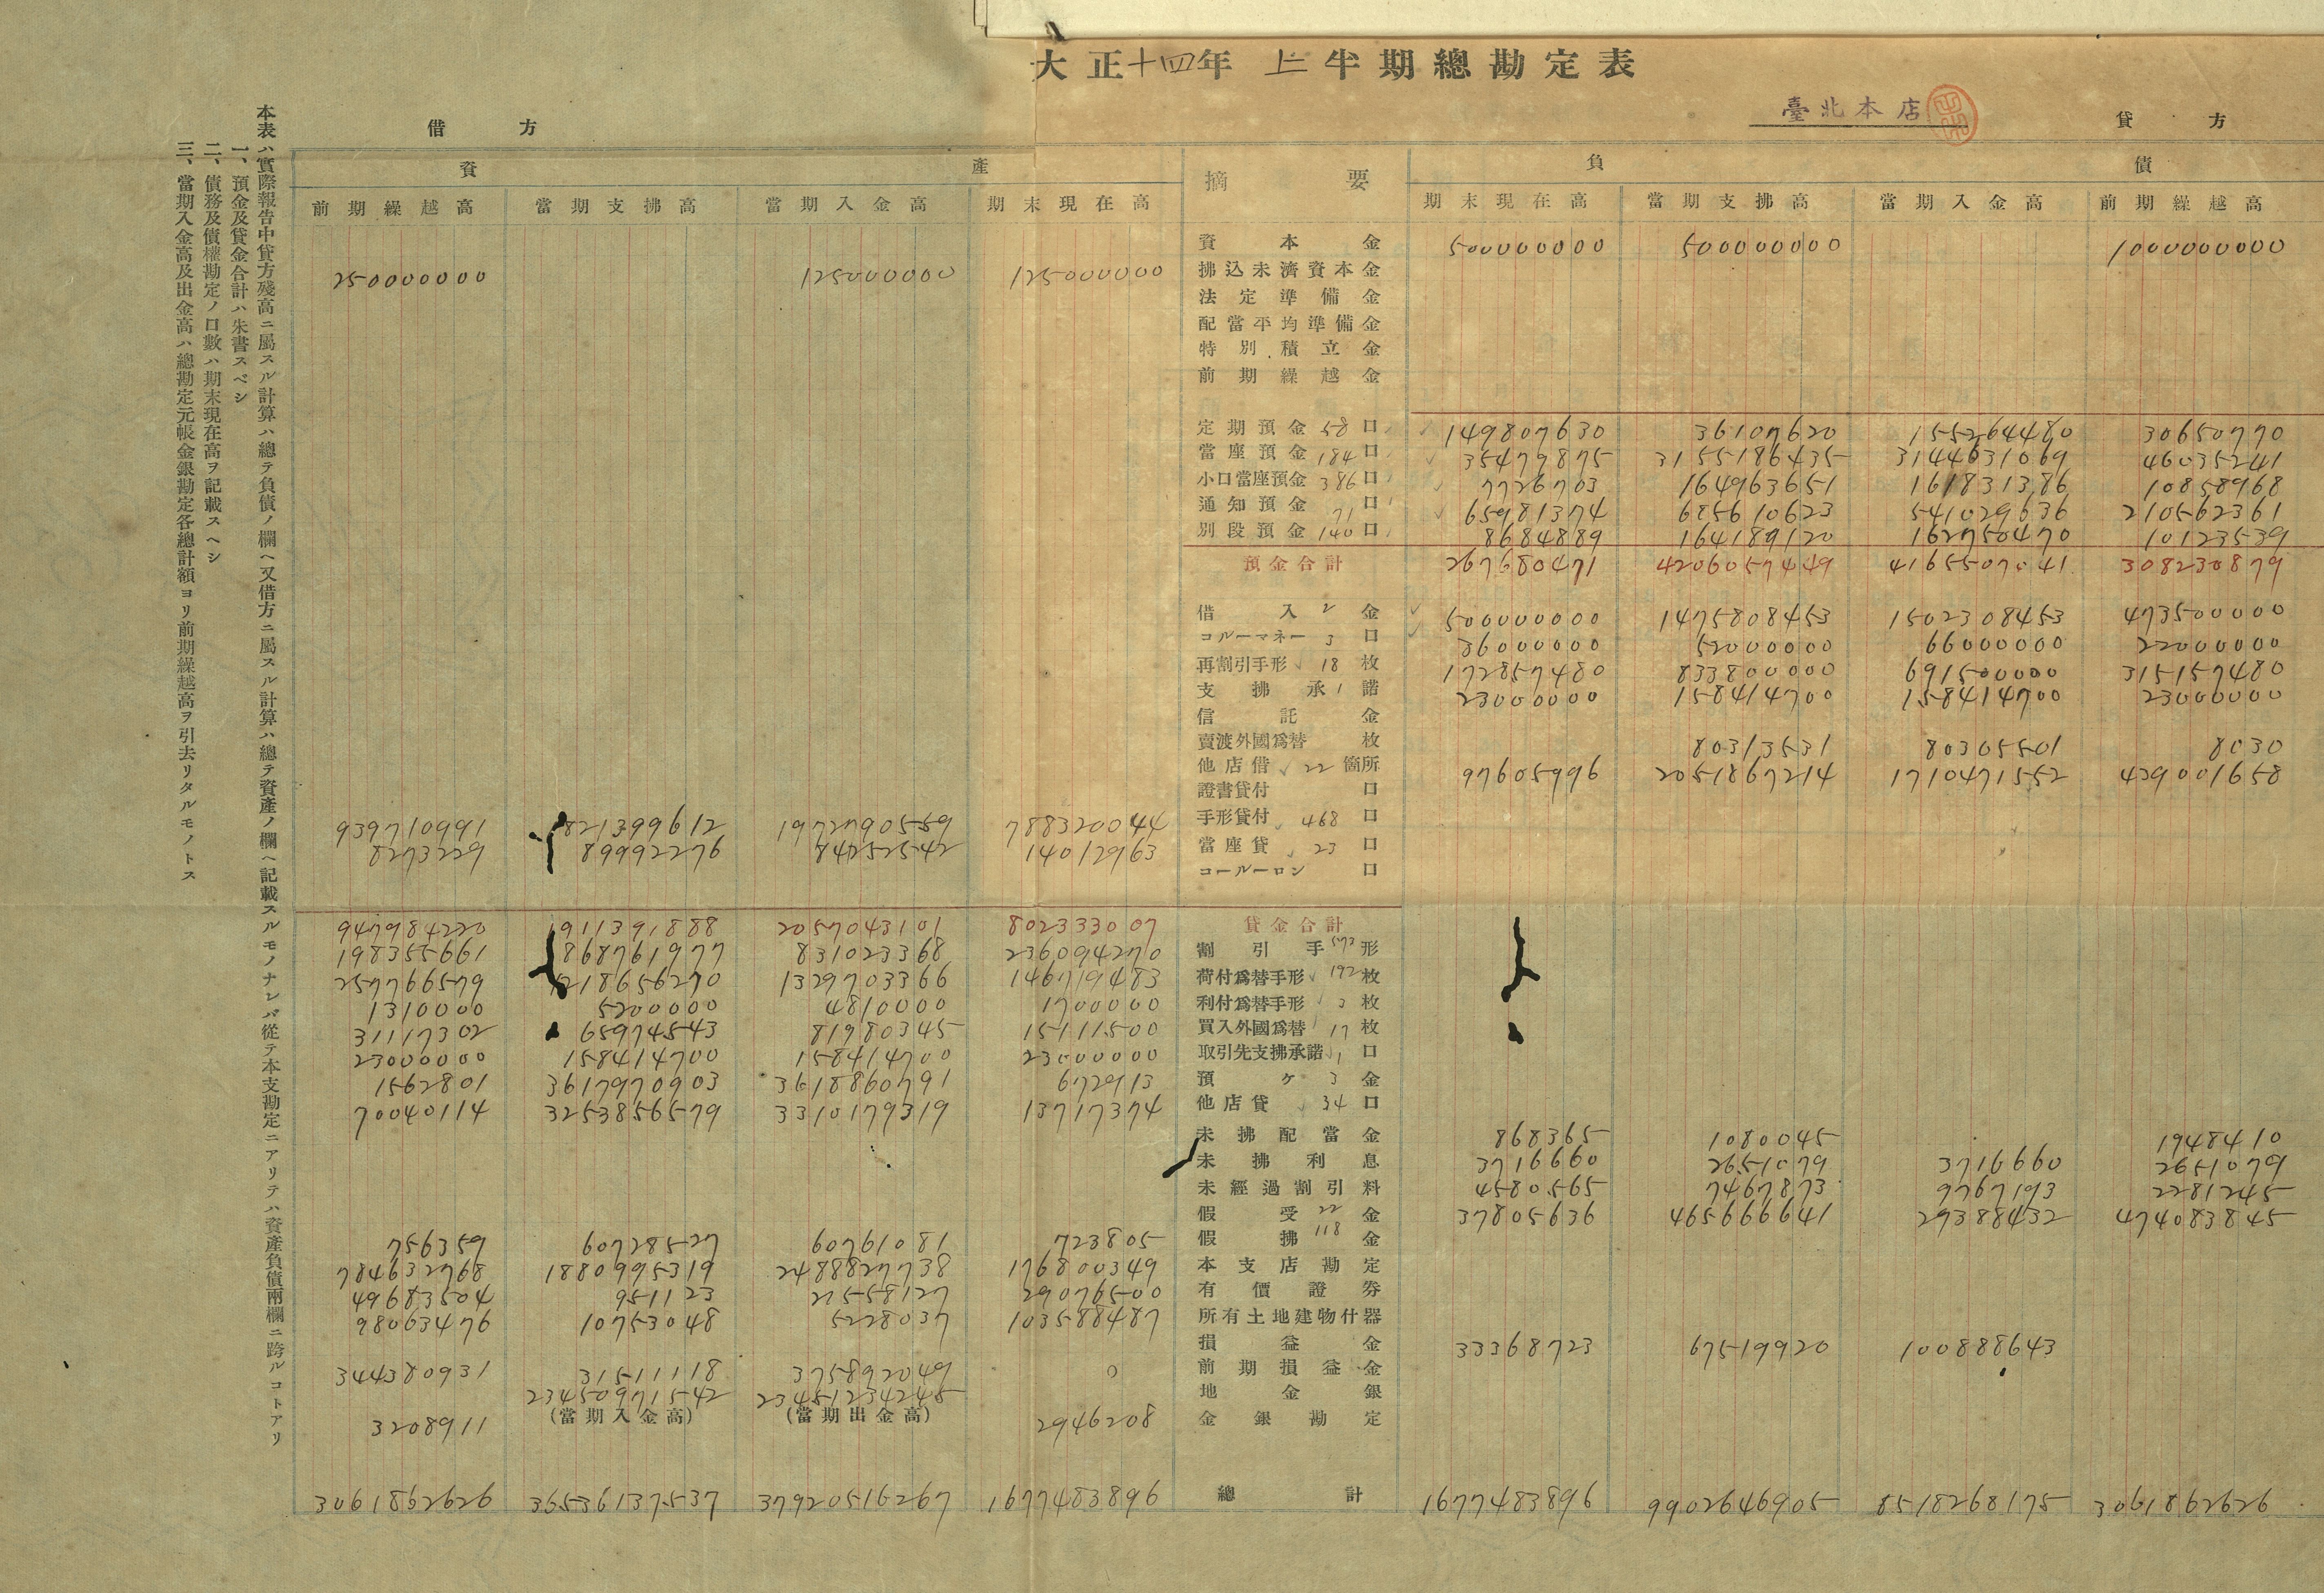 大正十四年上半期總勘定表
臺北本店
借方
貸方
資產
摘要
負債
前期繰越高 當期支拂高 當期入金高 期末現在高 期末現在高 當期支拂高 當期入金高 前期繰越高
資本金 500000000 500000000 1000000000
250000000 125000000 125000000 拂込未濟資本金
法定準備金
配當平均準備金
特別積立金
前期繰越金
定期預金 58口 149807630 36107620 155264480 30650770
當座預金 184口 35479875 3155186435 3144631069 46035241
小口當座預金 386口 7726703 164963651 161831386 10858968
通知預金 71口 65981374 685610623 541029636 210562361
別段預金 140口 8684889 164189120 162750470 10123539
預金合計 267680471 4206057449 4165507041 308230879
借入 2 金 500000000 1475808453 1502308453 473500000
コルーマネー 3 口 36000000 52000000 66000000 22000000
再割引手形 18 枚 172857480 833800000 691500000 315157480
支拂承 1 諾 23000000 158414700 158414700 23000000
信託金
賣渡外國爲替 枚 80313531 80305501 8030
他店借 22 箇所 97605996 2051867214 1710471552 439001658
證書貸付 口
939710991 1821399612 1972790559 788320044 手形貸付 468 口
8273229 89992276 84252542 14012963 當座貸 23 口
コールーロン 口
947984220 1911391888 2057043101 802333007 貸金合計
198355661 868761977 831023368 236094270 割引手 572 形
257766579 1218656270 1329703366 146719483 荷付爲替手形 192 枚
1310000 5200000 4810000 1700000 利付爲替手形 3 枚
31117302 65974543 81980345 15111500 買入外國爲替 17 枚
23000000 158414700 158414700 23000000 取引先支拂承諾 1 口
1562801 3617970903 3618860791 672913 預ケ 3 金
70040114 3253856579 3310179319 13717374 他店貸 34 口
未拂配當金 868365 1080045 1948410
未拂利息 3716660 2651079 3716660 2651079
未經過割引料 4580565 7467873 9767193 2281245
假受 22 金 37805636 465666641 29388432 474083845
756359 60728527 60761081 723805 假拂 118 金
784632768 1880995319 2488827738 176800349 本支店勘定
49683504 951123 21558127 29076500 有價證券
98063476 10753048 5228037 103588487 所有土地建物什器
損益金 33368723 67519920 100888643
344380931 31511118 375892049 0 前期損益金
23450971542 23451234245 地金銀
3208911 (當期入金高) (當期出金高) 2946208 金銀勘定
3061862626 36536137537 37920516267 1677483896 總計 1677483896 9902646905 8518268175 3061862626
本表ハ實際報告中貸方殘高ニ屬スル計算ハ總テ負債ノ欄ヘ又借方ニ屬スル計算ハ總テ資產ノ欄ヘ記載スルモノナレバ從テ本支勘定ニアリテハ資產負債兩欄ニ跨ルコトアリ
一、預金及貸金合計ハ朱書スベシ
二、債務及債權勘定ノ口數ハ期末現在高ヲ記載スヘシ
三、當期入金高及出金高ハ總勘定元帳金銀勘定各總計額ヨリ前期繰越高ヲ引去リタルモノトス